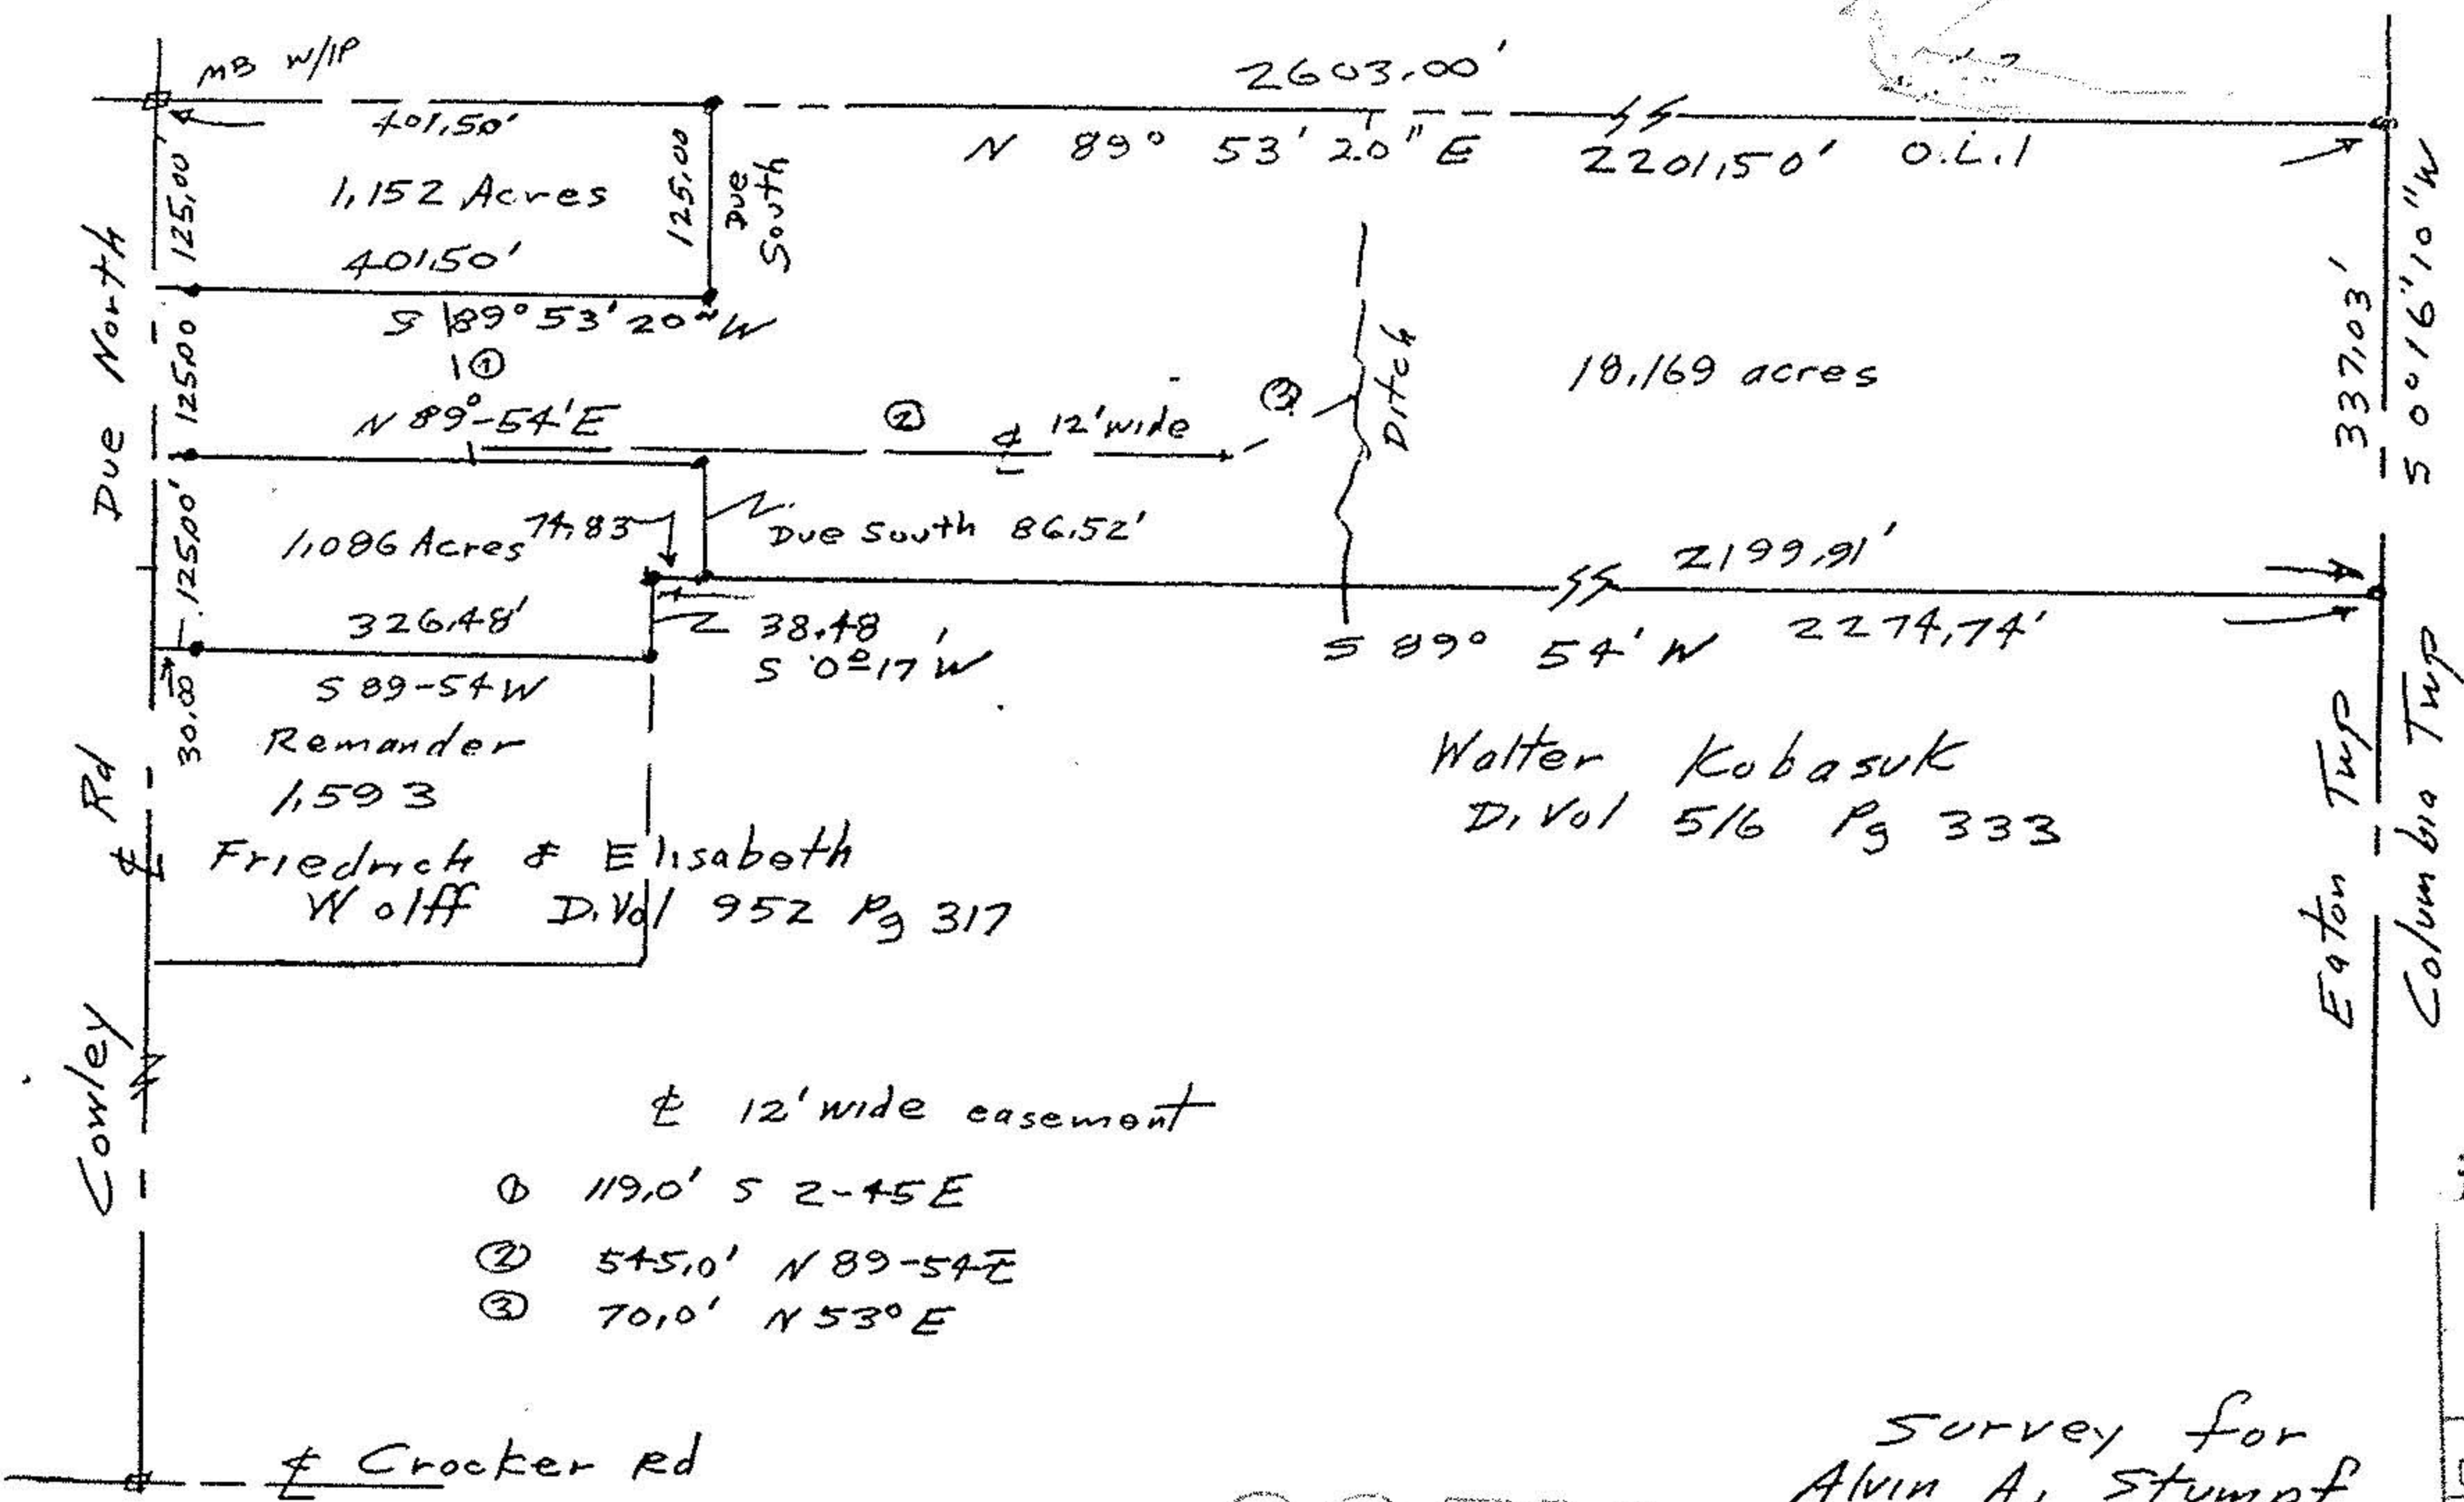 MB W/IP
2603.00'
401.50'
N 89° 53' 20" E 2201.50' O.L.1
125.00
1.152 Acres
125.00
Due South
401.50'
S 89° 53' 20" W
Due North
125.00
①
N 89°-54' E
② ℄ 12' wide
③
Ditch
18.169 acres
337.03'
S 0° 16" 10" W
125.00'
1.086 Acres
74.83
Due South 86.52'
2199.91'
326.48'
38.48'
S 0° 17 W
S 89° 54' W 2274.74'
30.00
S 89-54 W
Remander
1.593
Friedrich & Elisabeth
Wolff D.Vol 952 Pg 317
Walter Kobasuk
D. Vol 516 Pg 333
Eaton Twp
Columbia Twp
Cowley ℄ Rd
℄ 12' wide easement
① 119.0' S 2-45 E
② 545.0' N 89-54 E
③ 70.0' N 53° E
℄ Crocker Rd
Survey for
Alvin A. Stumpf